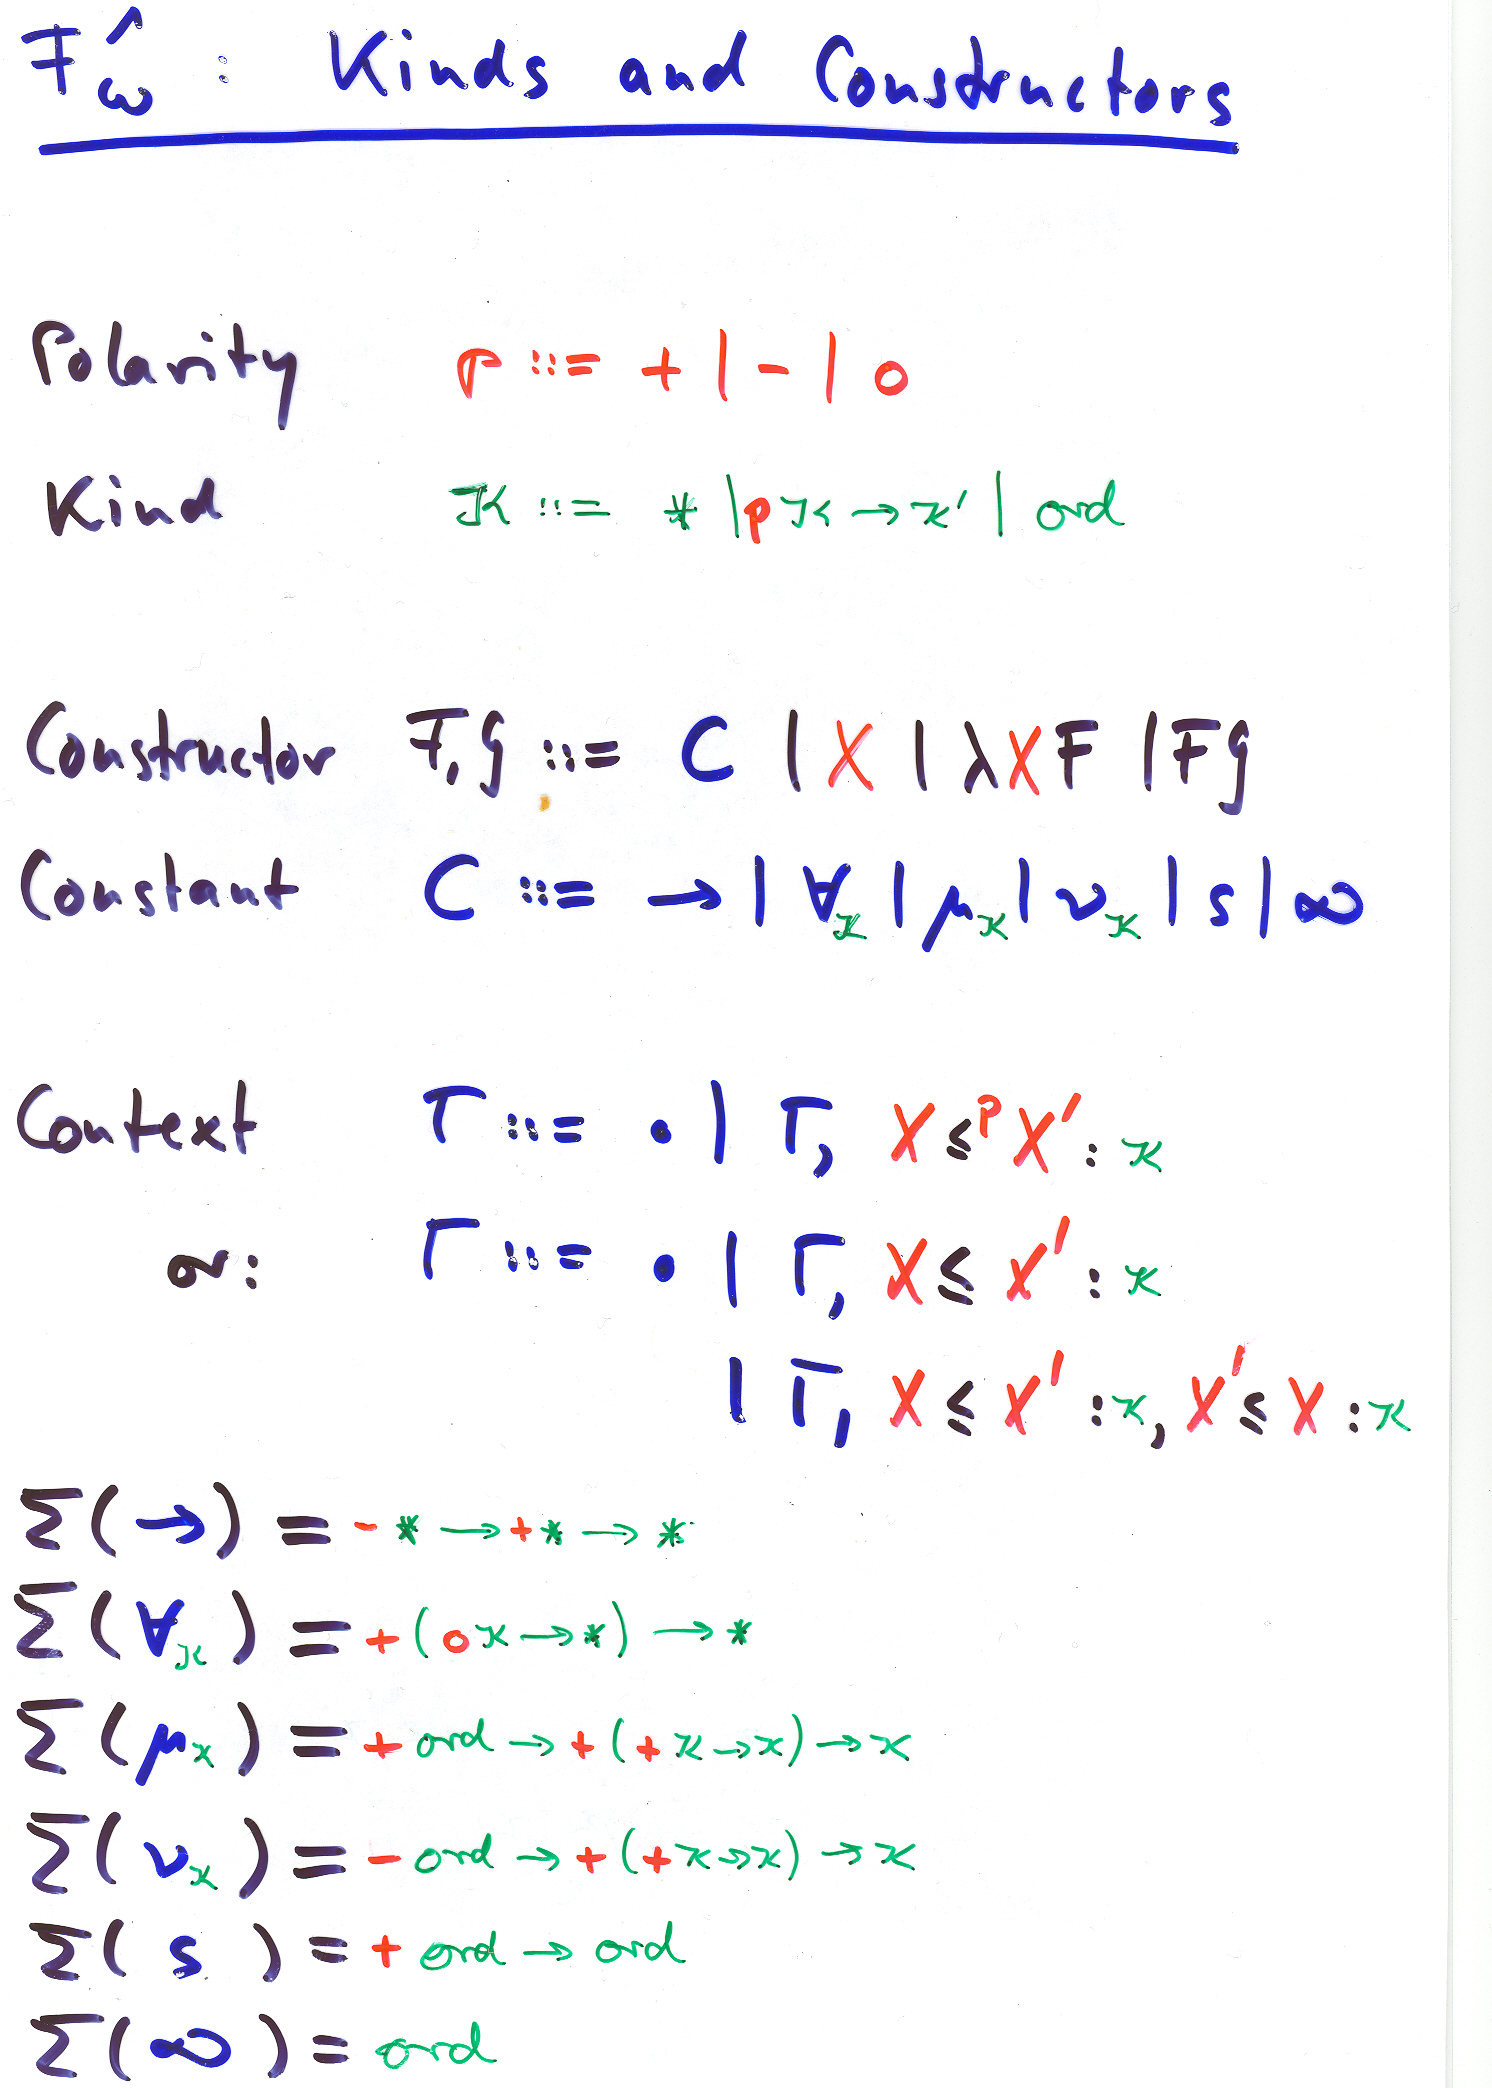 F^ω : Kinds and Constructors
Polarity p ::= + | - | o
Kind κ ::= * | pκ → κ' | ord
Constructor F, G ::= C | X | λXF | FG
Constant C ::= → | ∀κ | μκ | νκ | s | ∞
Context Γ ::= • | Γ, X ≤p X' : κ
or: Γ ::= • | Γ, X ≤ X' : κ
| Γ, X ≤ X' : κ, X' ≤ X : κ
Σ(→) = - * → + * → *
Σ(∀κ) = + (oκ → *) → *
Σ(μκ) = + ord → + (+κ → κ) → κ
Σ(νκ) = - ord → + (+κ → κ) → κ
Σ( s ) = + ord → ord
Σ(∞) = ord